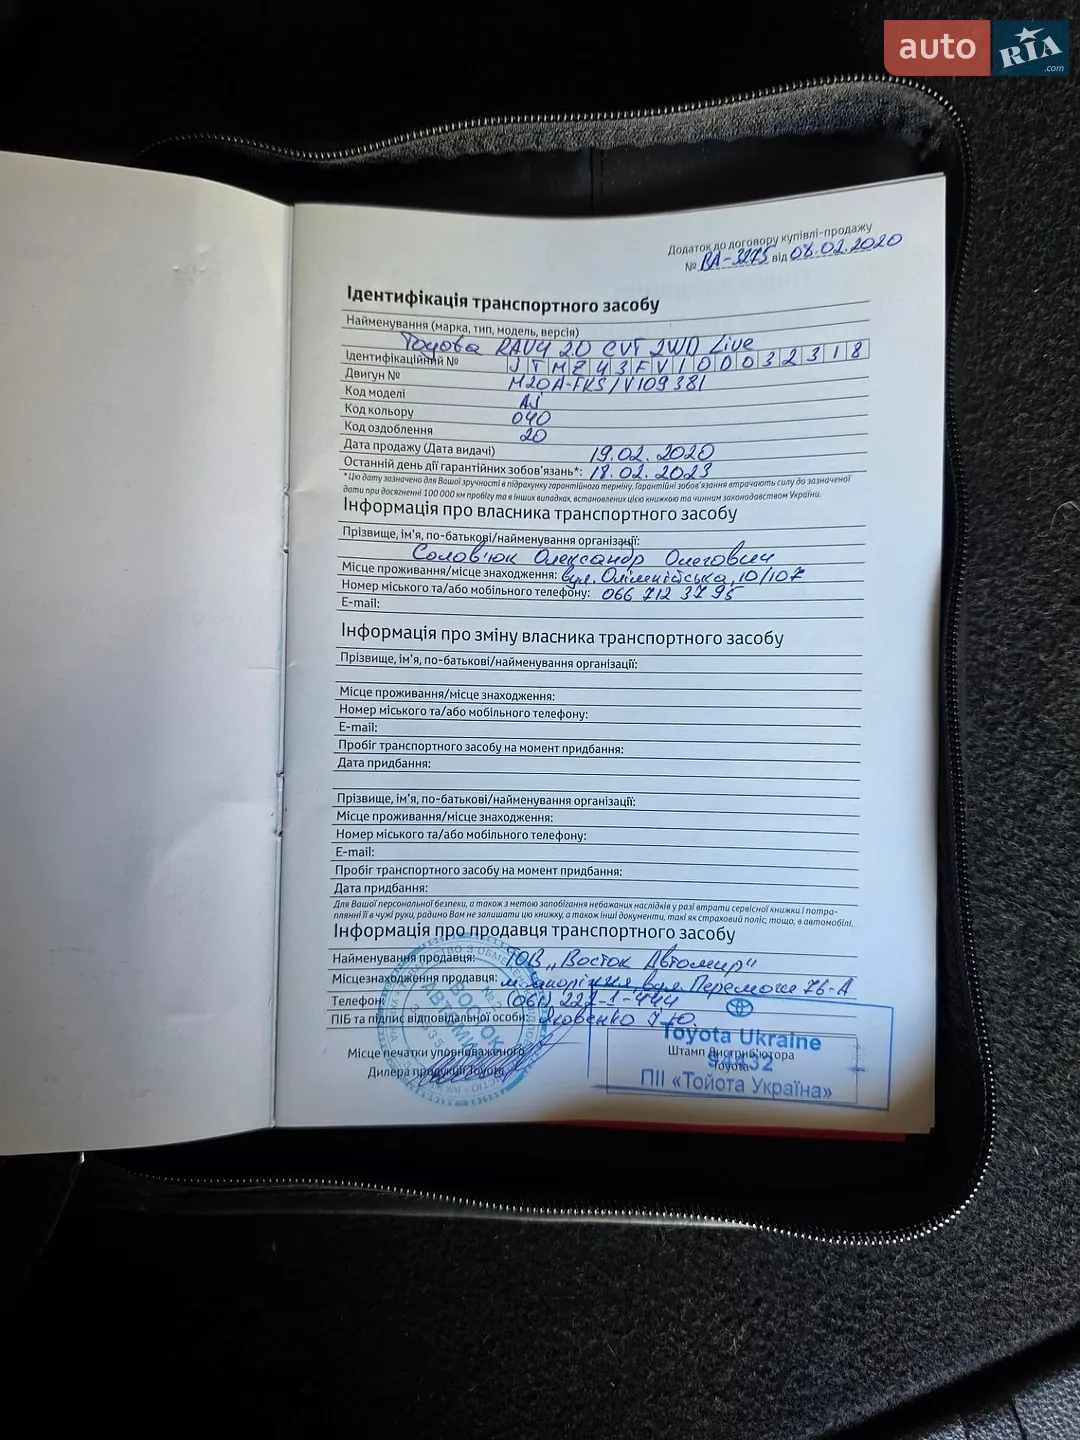 auto RIA.com
Додаток до договору купівлі-продажу
№ ВА-3275 від 08.02.2020
Ідентифікація транспортного засобу
Найменування (марка, тип, модель, версія)
Toyota RAV4 2.0 CVT 2WD Live
Ідентифікаційний № JTMZ43FV100032318
Двигун № M20A-FKS/V109381
Код моделі AJ
Код кольору 040
Код оздоблення 20
Дата продажу (Дата видачі) 19.02.2020
Останній день дії гарантійних зобов'язань*: 18.02.2023
* Цю дату зазначено для Вашої зручності в підрахунку гарантійного терміну. Гарантійні зобов'язання втрачають силу до зазначеної
дати при досягненні 100 000 км пробігу та в інших випадках, встановлених цією книжкою та чинним законодавством України.
Інформація про власника транспортного засобу
Прізвище, ім'я, по-батькові/найменування організації:
Солов'юк Олександр Олегович
Місце проживання/місце знаходження: вул. Олімпійська, 10/107
Номер міського та/або мобільного телефону: 066 712 37 95
E-mail:
Інформація про зміну власника транспортного засобу
Прізвище, ім'я, по-батькові/найменування організації:
Місце проживання/місце знаходження:
Номер міського та/або мобільного телефону:
E-mail:
Пробіг транспортного засобу на момент придбання:
Дата придбання:
Прізвище, ім'я, по-батькові/найменування організації:
Місце проживання/місце знаходження:
Номер міського та/або мобільного телефону:
E-mail:
Пробіг транспортного засобу на момент придбання:
Дата придбання:
Для Вашої персональної безпеки, а також з метою запобігання небажаних наслідків у разі втрати сервісної книжки і потра-
плянні її в чужі руки, радимо Вам не залишати цю книжку, а також інші документи, такі як страховий поліс, тощо, в автомобілі.
Інформація про продавця транспортного засобу
Найменування продавця: ТОВ „Восток Автомир"
Місцезнаходження продавця: м. Запоріжжя, вул. Перемоги 76-А
Телефон: (061) 222-1-444
ПІБ та підпис відповідальної особи: Яковенко
Місце печатки уповноваженого
Дилера продукції Toyota
ВОСТОК
АВТОМИР
Toyota Ukraine
Штамп Дистриб'ютора
Toyota
94432
ПІІ «Тойота Україна»